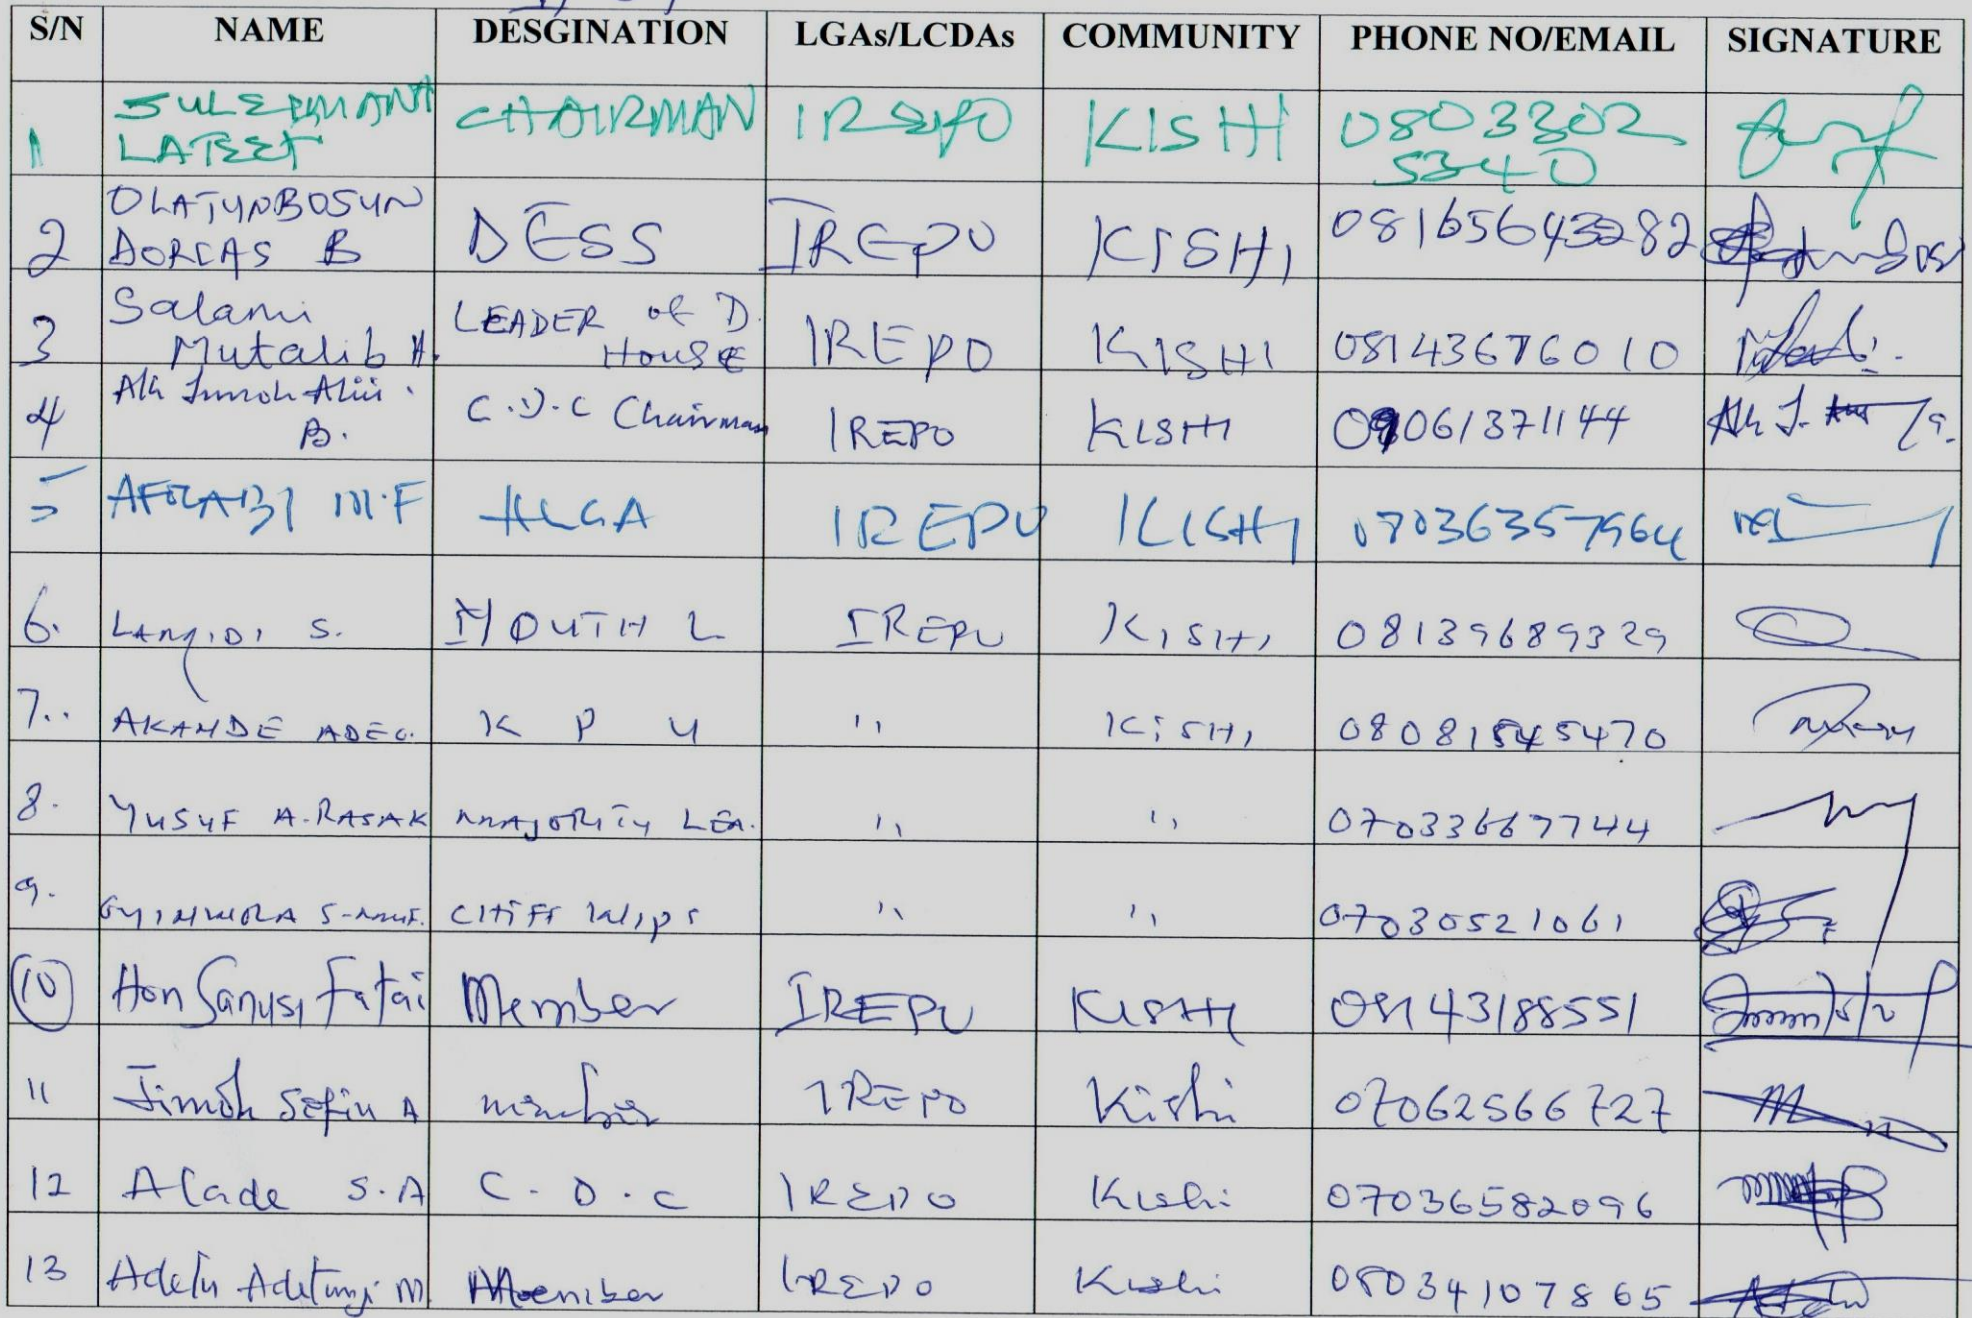 S/N NAME DESGINATION LGAs/LCDAs COMMUNITY PHONE NO/EMAIL SIGNATURE
1 SULEIMANA LATEEF CHAIRMAN IREPO KISHI 0803302 5340
2 OLATUNBOSUN DORCAS B DESS IREPO KISHI
3 Salami Mutalib A. LEADER of D. HOUSE IREPO KISHI 08143676010
4 Alh Jimoh Aliu. B. C.D.C Chairman IREPO KISHI 09061371144
5 AFOLABI M.F HLGA IREPO KISHI 07036357964
6. LAMIDI S. YOUTH L IREPO KISHI 08139689329
7.. AKANDE ADEG. K P U " KISHI 08081545470
8. YUSUF A.RASAK MAJORITY LEA. " " 07033667744
9. CHIEF Wips " " 07030521061
10 Hon Sanusi Fatai Member IREPO KISHI 08143188551
11 Jimoh Sefiu A member IREPO Kishi 07062566727
12 Alade S.A C.D.C IREPO Kishi 07036582096
13 Adetunji M Member IREPO Kishi 08034107865